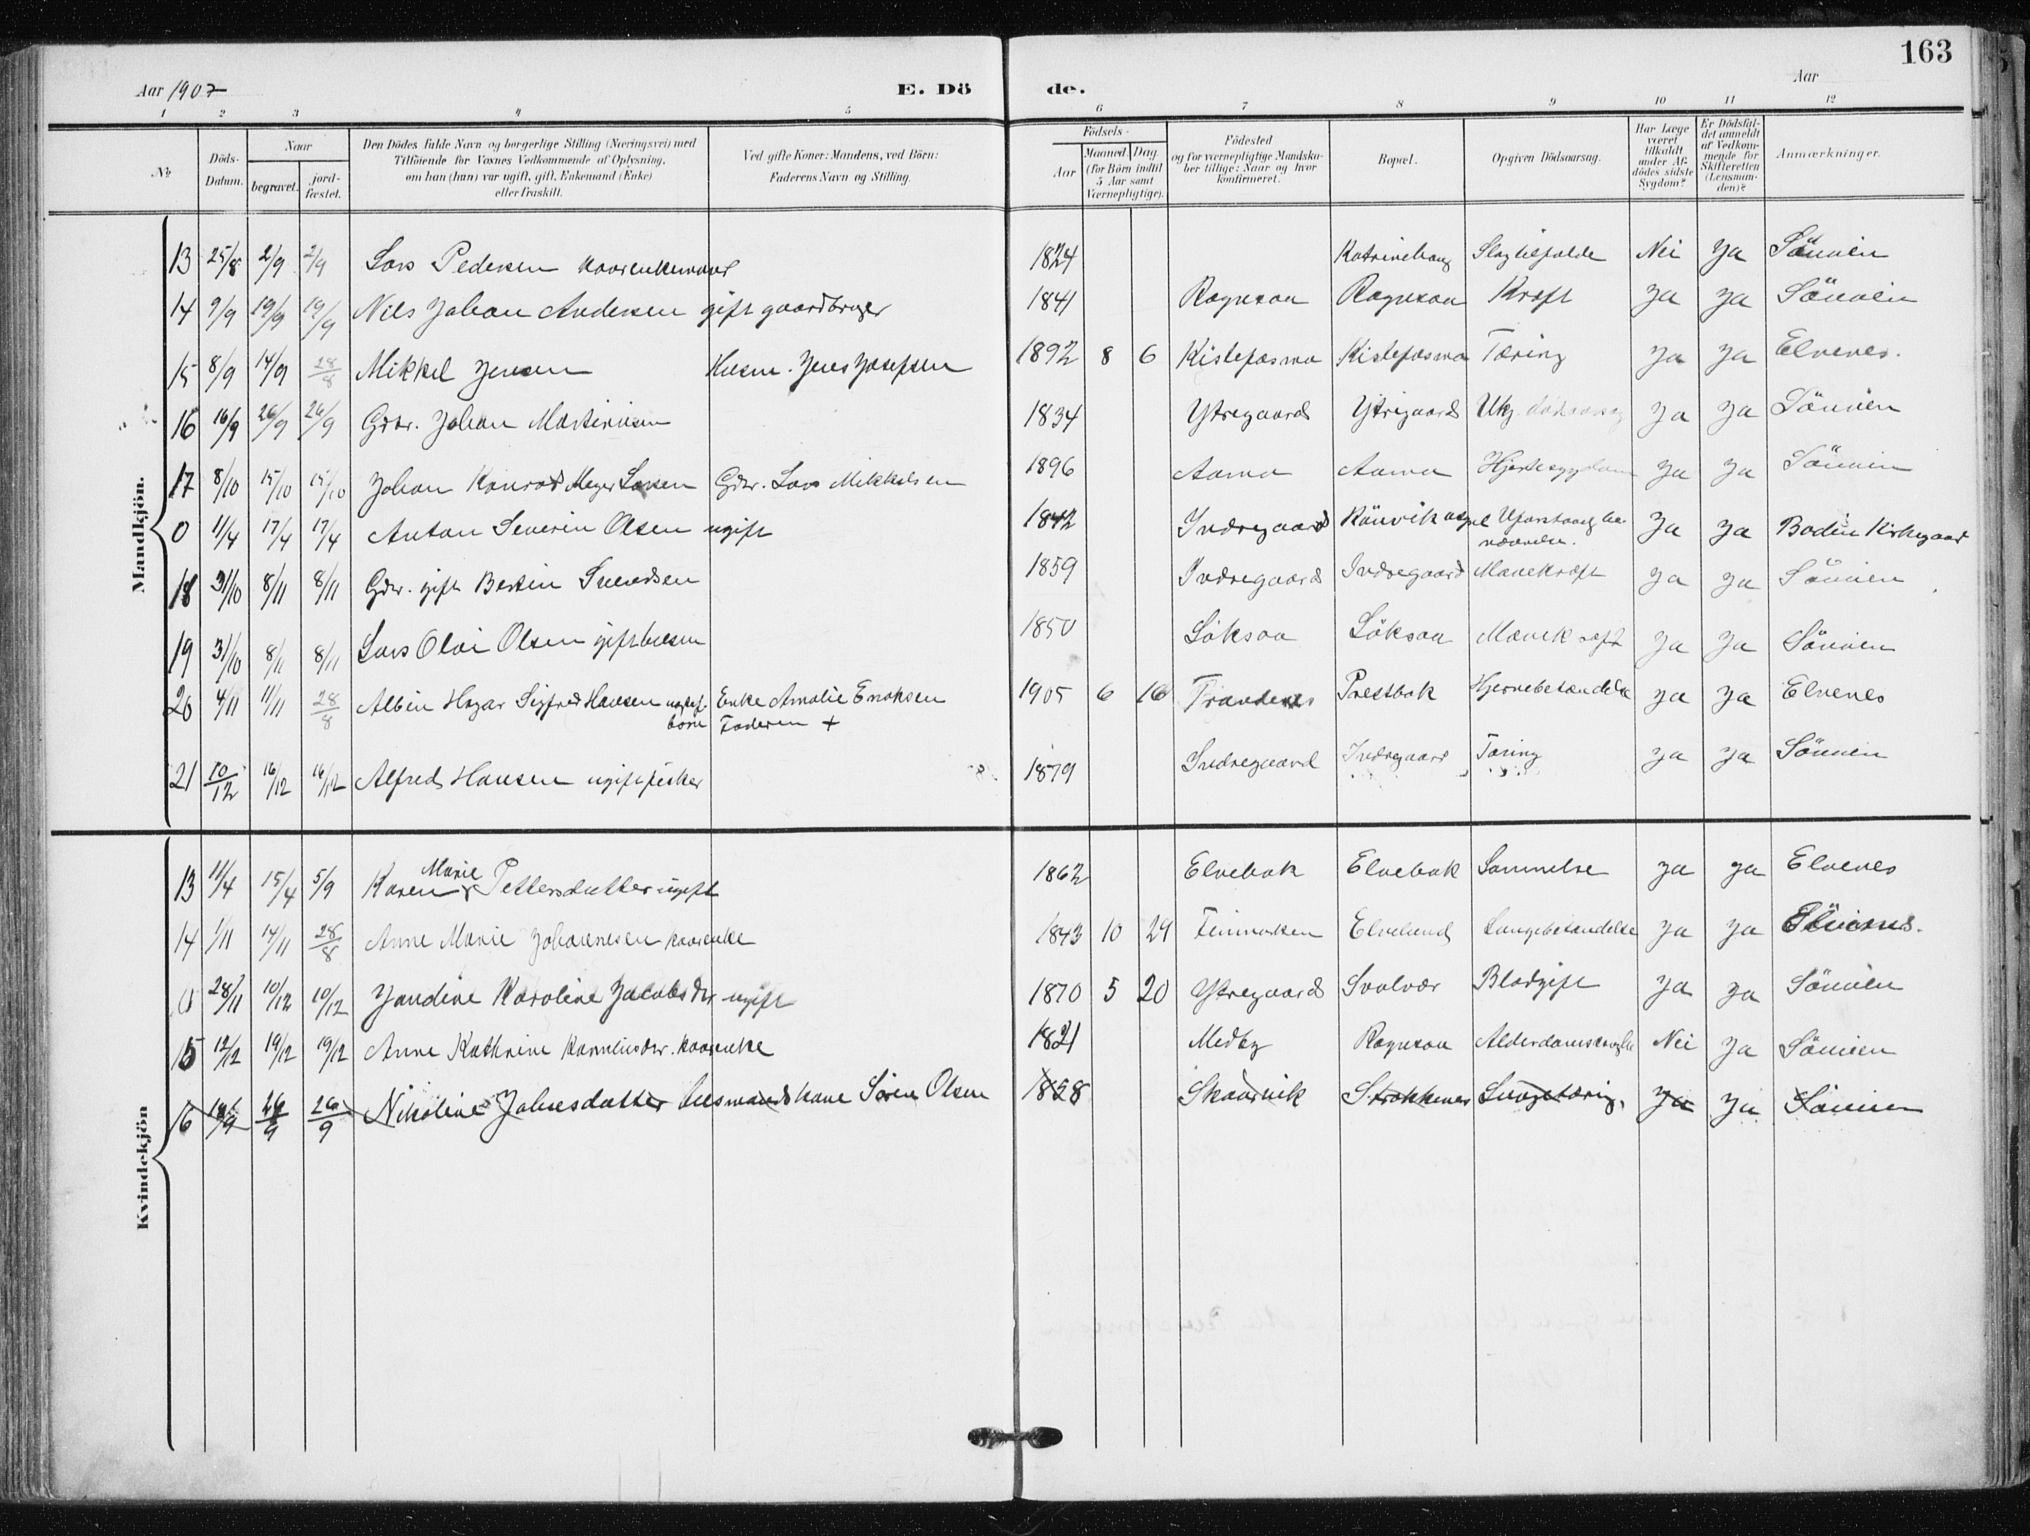 163
Aar 1907 E. Dö de. Aar
1 2 3 4 5 6 7 8 9 10 11 12
No
Döds-Datum.
Naar
begravet.
jordfæstet.
Den Dödes fulde Navn og borgerlige Stilling (Næringsvei) med
Tilföiende for Voxnes Vedkommende af Oplysning,
om han (hun) var ugift, gift, Enkemand (Enke)
eller fraskilt.
Ved gifte Koner: Mandens, ved Börn:
Faderens Navn og Stilling.
Födsels-
Aar
Maaned. Dag.
(for Börn indtil
5 Aar samt
Værnepligtige).
Födested
og for værnepligtige Mandska-
ber tillige: Naar og hvor
konfirmeret.
Bopæl.
Opgiven Dödsaarsag.
Har Læge
været
tilkaldt
under Af-
dödes sidste
Sygdom?
Er Dödsfal-
det anmeldt
af Vedkom-
mende for
Skifteretten
(Lensman-
den)?
Anmærkninger.
Mandkjön.
13 25/8 2/9 2/9 Lars Pedersen kaarenkemand 1824 Katrinehaug Slagtilfælde Nei Ja Sönvien
14 9/9 19/9 19/9 Nils Johan Andersen gift gaardbruger 1841 Ragnsaa Ragnsaa Kræft Ja Ja Sönvien
15 8/9 14/9 28/8 Mikkel Jensen Husm. Jens Josefsen 1892 8 6 Kistefosmo Kistefosmo Tæring Ja Ja Elvenes.
16 16/9 26/9 26/9 Gdbr. Johan Martinusen 1834 Ytregaard Ytregaard Ukj. dødsaarsag Ja Ja Sönvien
17 8/10 15/10 15/10 Johan Konrad Meyer Larsen Gdbr. Lars Mikkelsen 1896 Aamo Aamo Hjertesygdom Ja Ja Sönvien
0 11/4 17/4 17/4 Anton Severin Olsen ugift 1842 Indregaard Rönvik asyl Uforstaaelig be-
nævnelse. Ja Ja Bodin Kirkegaard
18 31/10 8/11 8/11 Gdbr. gift Bertin Svendsen 1859 Indregaard Indregaard Mavekræft Ja Ja Sönvien
19 31/10 8/11 8/11 Lars Olai Olsen gift husm 1850 Löksaa Löksaa Mavekræft Ja Ja Sönvien
20 4/11 11/11 28/8 Albin Hagar Sigfred Hansen uægtef. Enke Amalie Enoksen 1905 6 16 Trandenes Prestbak Hjernebetændelse Ja Ja Elvenes
born Faderen +
21 10/12 16/12 16/12 Alfred Hansen ugift fisker 1879 Indregaard Indregaard Tæring Ja Ja Sönvien
Kvindekjön
13 11/4 15/4 5/9 Karen Marie Pettersdatter ugift 1862 Elvebak Elvebak Lammelse Ja Ja Elvenes
14 1/11 14/11 28/8 Anne Marie Johannesen kaarenke 1843 10 24 Finmarken Elvelund Lungebetændelse Ja Ja Elvenes.
0 28/11 10/12 10/12 Jandine Karoline Jacobsdtr ugift 1870 5 20 Ytregaard Svolvær Blodgift Ja Ja Sönvien
15 12/12 19/12 19/12 Anne Kathrine Korneliusdtr. kaarenke 1821 Medby Ragnsaa Alderdomssvaghed Nei Ja Sönvien
16 16/9 26/9 26/9 Nikoline Johnsdatter husmandskone Sören Olsen 1828 Skaarvik Strokkenes Lungetæring. Ja Ja Sönvien